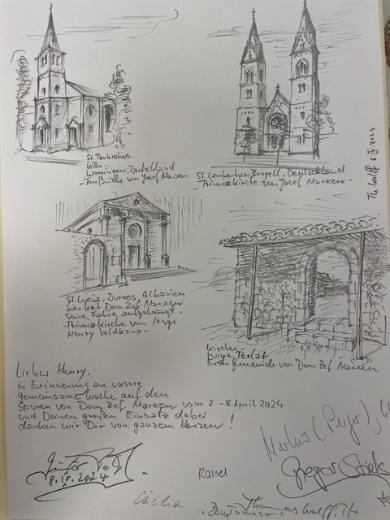 St. Pankratius,
Köln-
Worringen, Deutschland
Taufkirche von Josef Marxen
St. Lambertus, Breyell, Deutschland
Primizkirche von Josef Marxen
St. Lucia, Durres, Albanien
hier hat Dom Zef Marxen
seine
Primizkirche von Msgr.
Henry Veldkamp.
Kirche
Erste Gemeinde von Dom Zef Marxen
Lieber Henry,
in Erinnerung an unsere
gemeinsame Woche auf den
Spuren von Dom Zef Marxen vom 2.-8. April 2024
und Deinen großen Einsatz dabei
danken wir Dir von ganzem Herzen!
8.IV.2024
Markus
Gregor
Cäcilia
Thomas